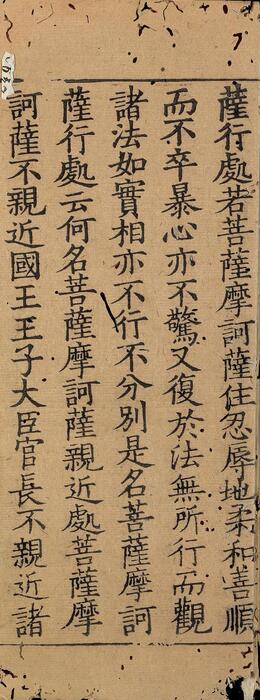 薩行處若菩薩摩訶薩住忍辱地柔和善順
而不卒暴心亦不驚又復於法無所行而觀
諸法如實相亦不行不分別是名菩薩摩訶
薩行處云何名菩薩摩訶薩親近處菩薩摩
訶薩不親近國王王子大臣官長不親近諸